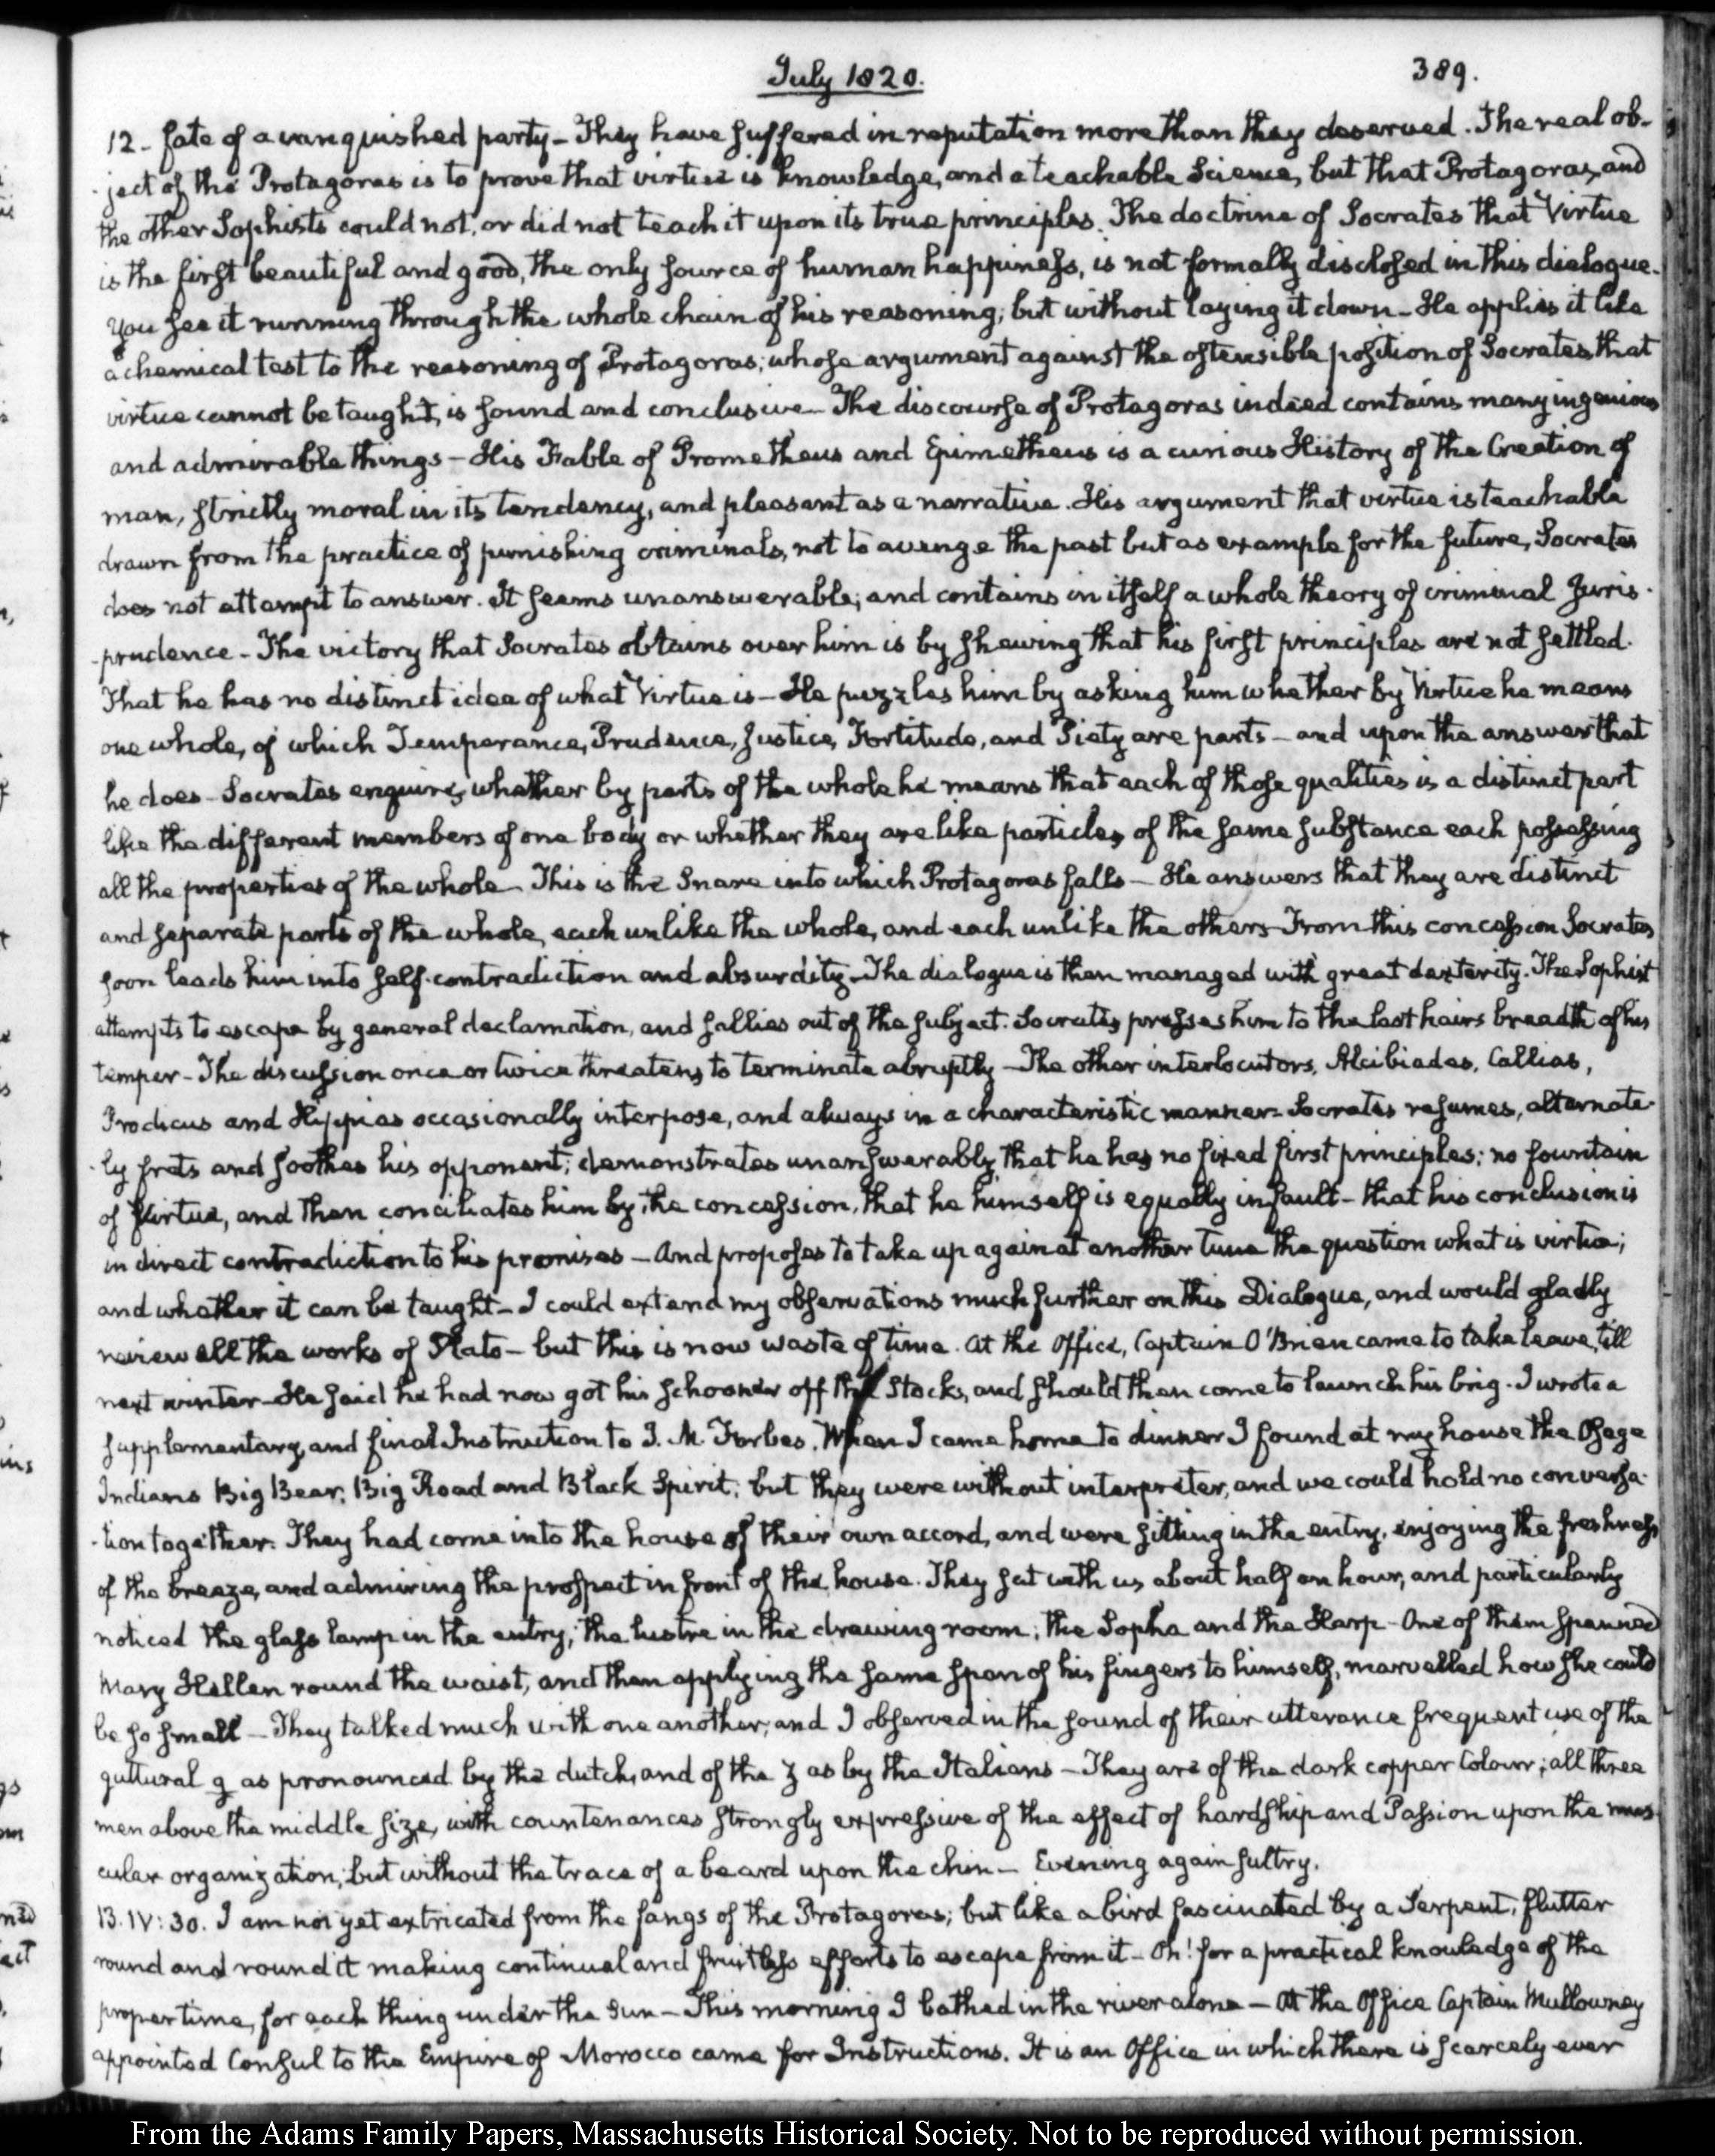 July 1820.
389.
12- fate of a vanquished party - They have suffered in reputation more than they deserved. The real ob-
-ject of the Protagoras is to prove that virtue is knowledge, and a teachable Science, but that Protagoras, and
the other Sophists could not, or did not teach it upon its true principles. The doctrine of Socrates that Virtue
is the first beautiful and good, the only source of human happiness, is not formally disclosed in this dialogue.
You see it running through the whole chain of his reasoning; but without laying it down - He applies it like
a chemical test to the reasoning of Protagoras; whose argument against the ostensible position of Socrates, that
virtue cannot be taught, is sound and conclusive - The discourse of Protagoras indeed contains many ingenious
and admirable things - His Fable of Prometheus and Epimetheus is a curious History of the Creation of
man, strictly moral in its tendency, and pleasant as a narrative. His argument that virtue is teachable
drawn from the practice of punishing criminals, not to avenge the past but as example for the future, Socrates
does not attempt to answer. It seems unanswerable; and contains in itself a whole theory of criminal Juris-
-prudence - The victory that Socrates obtains over him is by shewing that his first principles are not settled.
That he has no distinct idea of what Virtue is - He puzzles him by asking him whether by Virtue he means
one whole, of which Temperance, Prudence, Justice, Fortitude, and Piety are parts - and upon the answer that
he does - Socrates enquires, whether by parts of the whole he means that each of those qualities is a distinct part
like the different members of one body or whether they are like particles of the same substance each possessing
all the properties of the whole - This is the Snare into which Protagoras falls - He answers that they are distinct
and separate parts of the whole, each unlike the whole, and each unlike the others - From this concession Socrates
soon leads him into self-contradiction and absurdity - The dialogue is then managed with great dexterity. The Sophist
attempts to escape by general declamation, and sallies out of the subject. Socrates presses him to the last hairs breadth of his
temper - The discussion once or twice threatens to terminate abruptly - The other interlocutors, Alcibiades, Callias,
Prodicus and Hippias occasionally interpose, and always in a characteristic manner - Socrates resumes, alternate-
-ly frets and soothes his opponent; demonstrates unanswerably that he has no fixed first principles; no fountain
of Virtue, and then conciliates him by the concession, that he himself is equally in fault - that his conclusion is
in direct contradiction to his premises - And proposes to take up again at another time the question what is virtue;
and whether it can be taught - I could extend my observations much further on this Dialogue, and would gladly
review all the works of Plato - but this is now waste of time. At the Office, Captain O'Brien came to take leave, till
next winter - He said he had now got his schooner off the Stocks, and should then come to launch his brig. I wrote a
supplementary, and final Instruction to J. M. Forbes. When I came home to dinner I found at my house the Osage
Indians Big Bear, Big Road and Black Spirit; but they were without interpreter, and we could hold no conversa-
-tion together. They had come into the house of their own accord, and were sitting in the entry, enjoying the freshness
of the breeze, and admiring the prospect in front of the house. They sat with us about half an hour, and particularly
noticed the glass lamp in the entry; the lustre in the drawing room; the Sopha and the Harp - One of them spanned
Mary Hellen round the waist, and then applying the same span of his fingers to himself, marvelled how she could
be so small - They talked much with one another, and I observed in the sound of their utterance frequent use of the
guttural g as pronounced by the dutch, and of the z as by the Italians - They are of the dark copper Colour; all three
men above the middle size, with countenances strongly expressive of the effect of hardship and Passion upon the mus-
cular organization, but without the trace of a beard upon the chin - Evening again sultry.
13. IV: 30. I am not yet extricated from the fangs of the Protagoras; but like a bird fascinated by a Serpent, flutter
round and round it making continual and fruitless efforts to escape from it - Oh! for a practical knowledge of the
proper time, for each thing under the Sun - This morning I bathed in the river alone - At the Office Captain Mullowney
appointed Consul to the Empire of Morocco came for Instructions. It is an Office in which there is scarcely ever
From the Adams Family Papers, Massachusetts Historical Society. Not to be reproduced without permission.